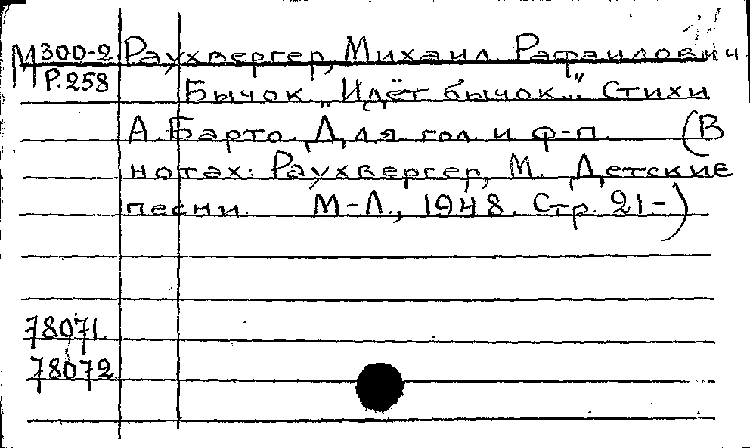 М 300-2 Раухвергер, Михаил Рафаилович
Р.258 Бычок „Идёт бычок..." Стихи
А. Барто. Для гол. и ф-п. (В
нотах: Раухвергер, М. Детские
песни. М-Л., 1948. Стр. 21-)
78071
78072